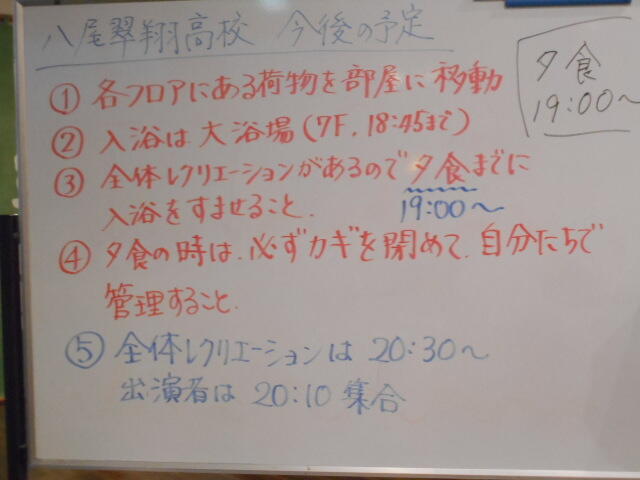 八尾翠翔高校 今後の予定
夕食
19:00〜
① 各フロアにある荷物を部屋に移動
② 入浴は大浴場(7F,18:45まで)
③ 全体レクリエーションがあるので夕食までに
入浴をすませること. 19:00〜
④ 夕食の時は、必ずカギを閉めて、自分たちで
管理すること.
⑤ 全体レクリエーションは 20:30〜
出演者は 20:10 集合